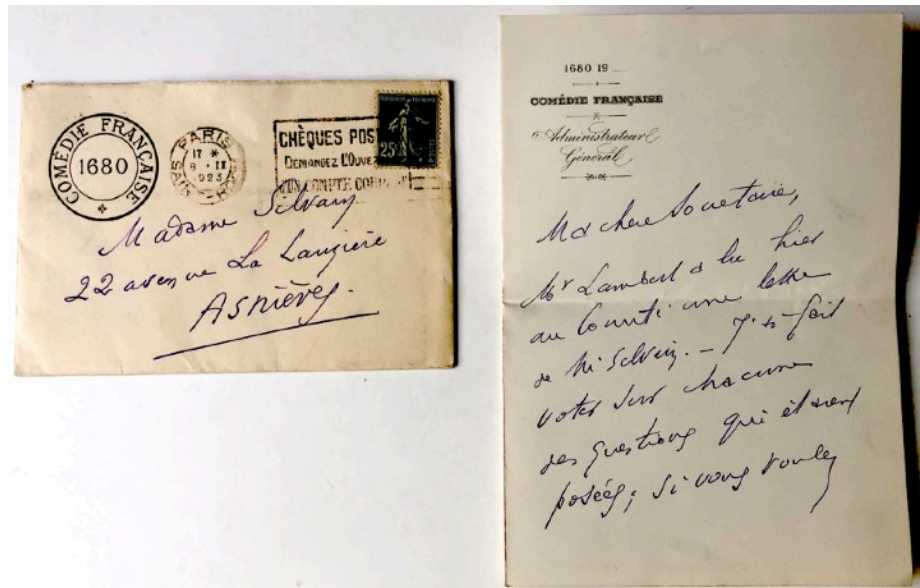 COMÉDIE FRANÇAISE
1680
PARIS
17 *
8 · II
1923
CHÈQUES POS
DEMANDEZ L'OUVE
D'UN COMPTE COU
25c
Madame Silvain
22 avenue La Lauzière
Asnières.
1680 19
COMÉDIE FRANÇAISE
Administrateur
Général
Ma chère Sociétaire,
Mr Lambert a lu hier
au Comité une lettre
de Mr Silvain. – J'ai fait
voter sur chacune
des questions qui étaient
posées; si vous voulez